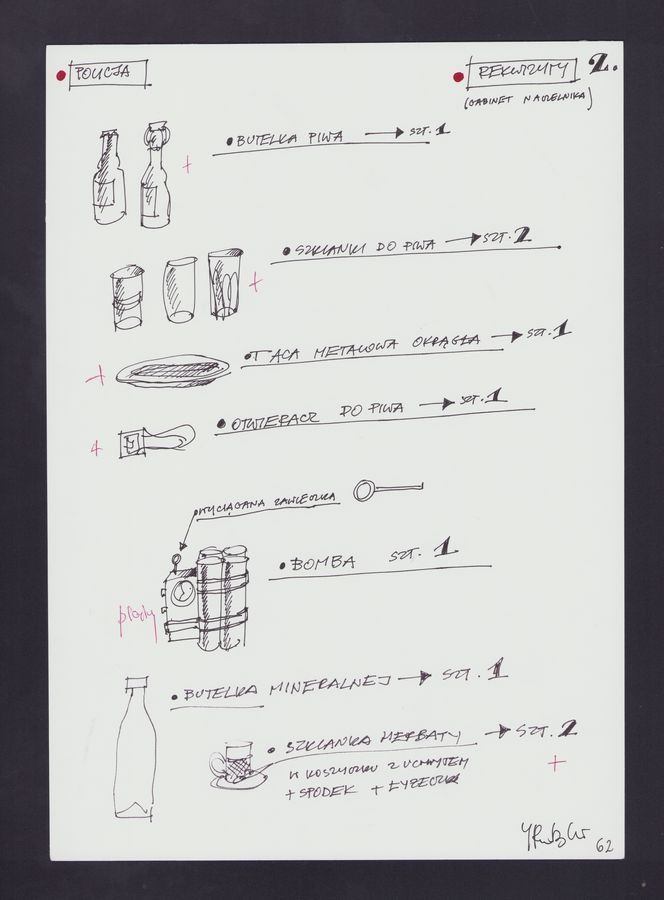 • POLICJA
• REKWIZYTY 2.
(GABINET NACZELNIKA)
• BUTELKA PIWA → SZT. 1
• SZKLANKI DO PIWA → SZT. 2
• TACA METALOWA OKRĄGŁA → SZT. 1
• OTWIERACZ DO PIWA → SZT. 1
• WYCIĄGANA ZAWLECZKA
• BOMBA SZT. 1
• BUTELKA MINERALNEJ → SZT. 1
• SZKLANKA HERBATY → SZT. 2
W KOSZYCZKU Z UCHWYTEM
+ SPODEK + ŁYŻECZKA
62